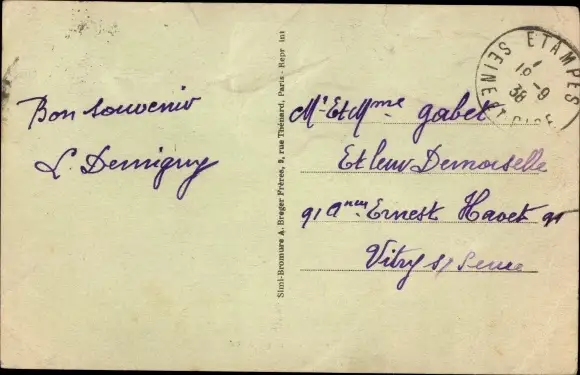 Bon souvenir
L. Demigny
Simi-Bromure A. Breger Frères, 9, rue Thénard, Paris - Repr int
Mr Et Mme gabet
Et leur Demoiselle
91 Ernest Havet 91
Vitry s/ Seine
ETAMPES
SEINE ET OISE
10 -9
38